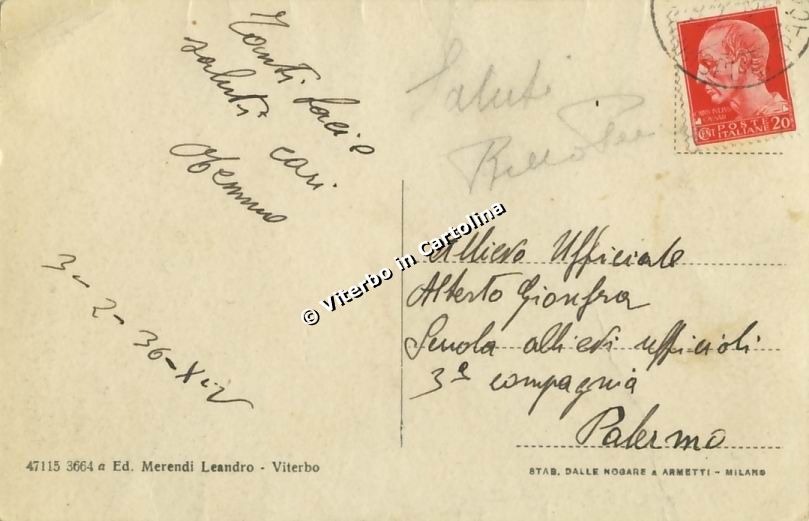 Tanti baci e
saluti cari
3-2-36-XIV
Saluti
POSTE
ITALIANE
CENT 20
Allievo Ufficiale
Alberto Gionfra
Scuola allievi ufficiali
3ª compagnia
Palermo
© Viterbo in Cartolina
47115 3664 a Ed. Merendi Leandro - Viterbo
STAB. DALLE NOGARE & ARMETTI - MILANO